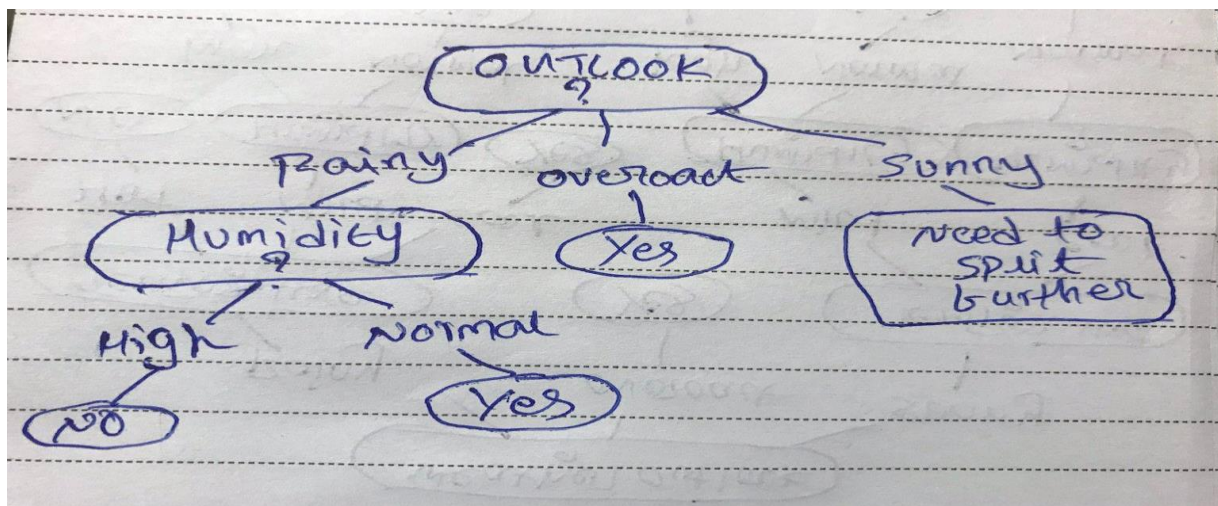 OUTLOOK
?
Rainy
overcast
Sunny
Humidity
?
Yes
Need to
split
further
High
Normal
NO
Yes